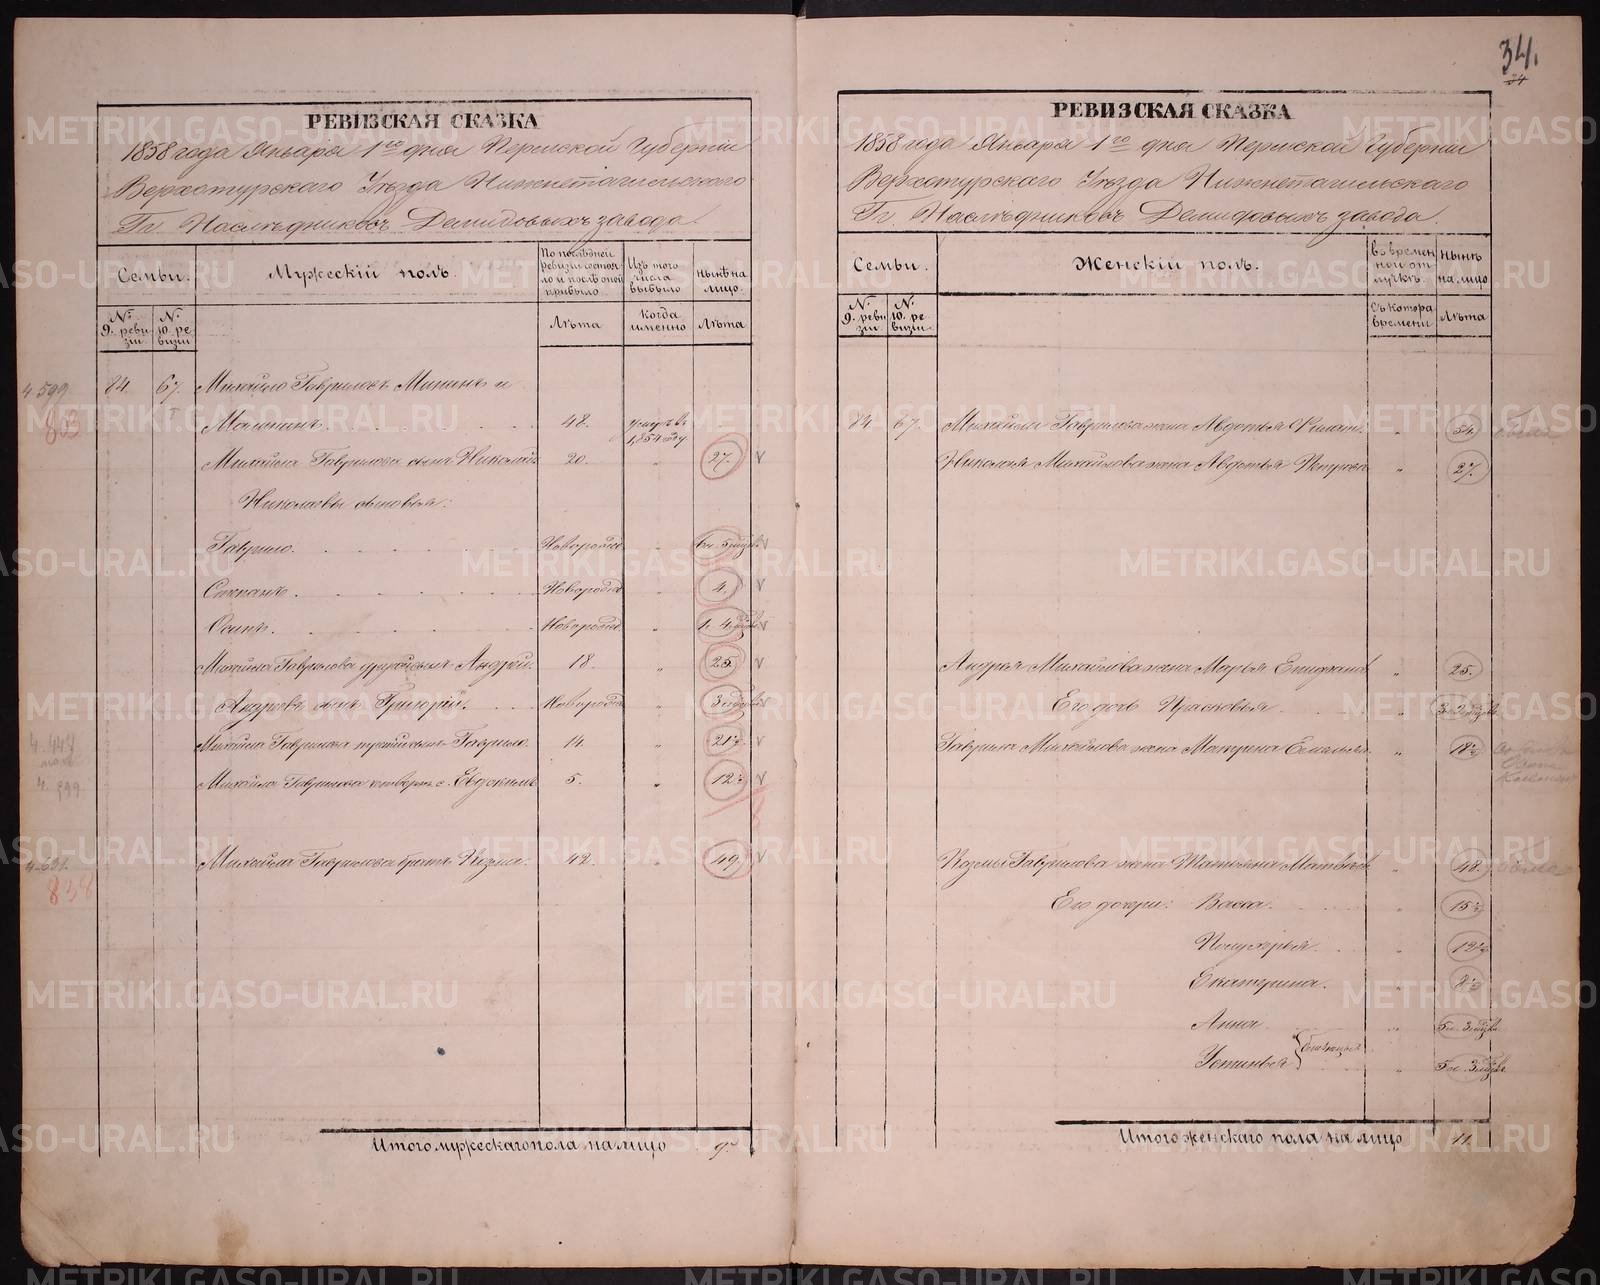 34.
34
РЕВИЗСКАЯ СКАЗКА
1858 года Января 1го дня Пермской Губерніи
Верхотурскаго Уѣзда Нижнетагильскаго
Гг. Наслѣдниковъ Демидовыхъ завода.
Семьи.
Мужескій полъ.
По послѣдней ревизіи состояло и послѣ оной прибыло
Изъ того числа выбыло
Нынѣ на лицо.
№ 9. ревизіи
№ 10. ревизіи
Лѣта
когда именно
Лѣта
4.599
803
84. 67. Михайло Гавриловъ Мининъ и
Малининъ. 48. умеръ въ 1854 году.
Михайла Гаврилова сынъ Николай 20. " 27. v
Николаевы сыновья:
Гаврило. Новорожд. " 6 л. 5 мцвъ v
Степанъ. Новорожд. " 4. v
Осипъ. Новорожд. " 1 г. 4 мцвъ v
Михайла Гаврилова другой сынъ Андрей. 18. " 25. v
Андреевъ сынъ Григорій. Новорожд. " 3 мцвъ v
4.444
4.999
Михайла Гаврилова третій сынъ Гаврило. 14. " 21½ v
Михайла Гаврилова четверт. с. Евдокимъ 5. " 12½ v
4.631.
838
Михайла Гаврилова братъ Козма. 42. " 49. v
Итого мужескаго пола на лицо 9.
РЕВИЗСКАЯ СКАЗКА
1858 года Января 1го дня Пермской Губерніи
Верхотурскаго Уѣзда Нижнетагильскаго
Гг. Наслѣдниковъ Демидовыхъ завода.
Семьи.
Женскій полъ.
во временной отлучкѣ.
Нынѣ на лицо.
№ 9. ревизіи
№ 10. ревизіи
Съ котора времени
Лѣта
84 67. Михайла Гаврилова жена Авдотья Филат. " 54.
Николая Михайлова жена Авдотья Петрова " 27.
Андрея Михайлова жена Марья Епифанов. " 25.
Его дочь Прасковья. " 3 г. 2 мцвъ
Гаврила Михайлова жена Матрена Емельян. " 18½
Козмы Гаврилова жена Татьяна Матвѣев. " 48.
Его дочери: Васса. " 15½
Пелагея. " 12½
Екатерина. " 8½
Анна " 5 л. 3 мцвъ
Устинья близнецы " 5 л. 3 мцвъ
Итого женскаго пола на лицо 11.
METRIKI.GASO-URAL.RU